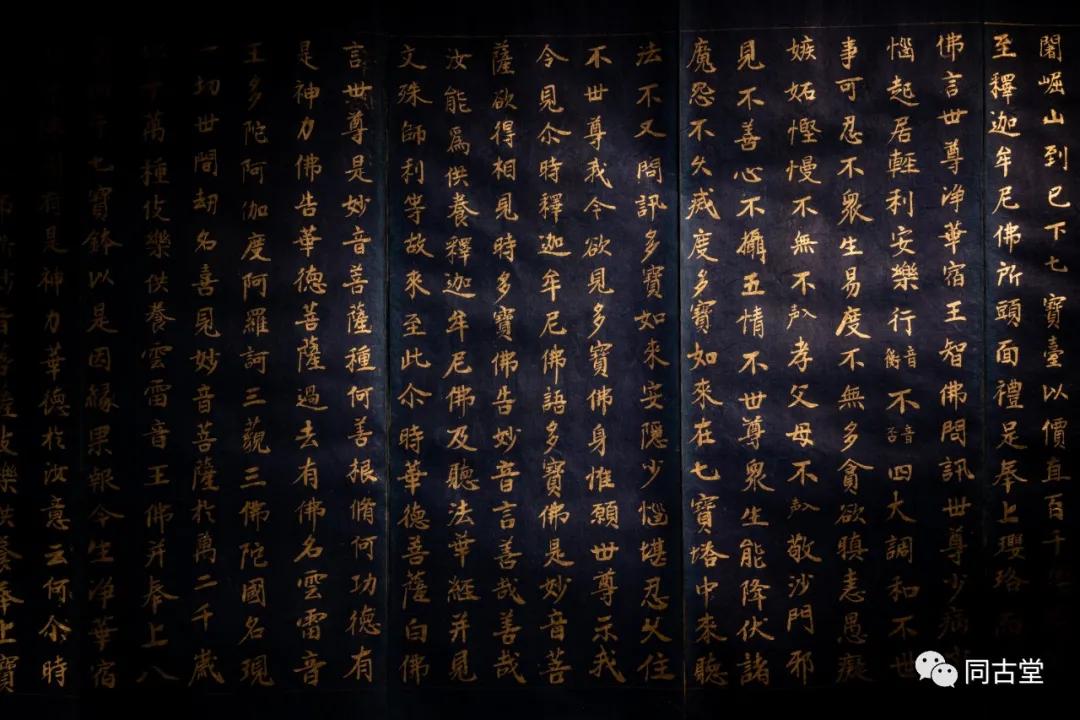 闍崛山到已下七寶臺以價直百千
至釋迦牟尼佛所頭面禮足奉上瓔珞而
佛言世尊淨華宿王智佛問訊世尊少病少
惱起居輕利安樂行衡音不否音四大調和不世
事可忍不衆生易度不無多貪欲瞋恚愚癡
嫉妬慳慢不無不孝父母不敬沙門邪
見不善心不攝五情不世尊衆生能降伏諸
魔怨不久滅度多寶如來在七寶塔中來聽
法不又問訊多寶如來安隱少惱堪忍久住
不世尊我今欲見多寶佛身惟願世尊示我
令見尒時釋迦牟尼佛語多寶佛是妙音菩
薩欲得相見時多寶佛告妙音言善哉善哉
汝能爲供養釋迦牟尼佛及聽法華經并見
文殊師利等故來至此尒時華德菩薩白佛
言世尊是妙音菩薩種何善根脩何功德有
是神力佛告華德菩薩過去有佛名雲雷音
王多陀阿伽度阿羅訶三藐三佛陀國名現
一切世間劫名喜見妙音菩薩於萬二千歲
十萬種伎樂供養雲雷音王佛并奉上八
四千七寶鉢以是因緣果報今生淨華宿
國有是神力華德於汝意云何尒時
所妙音菩薩伎樂供養奉上寶
同古堂